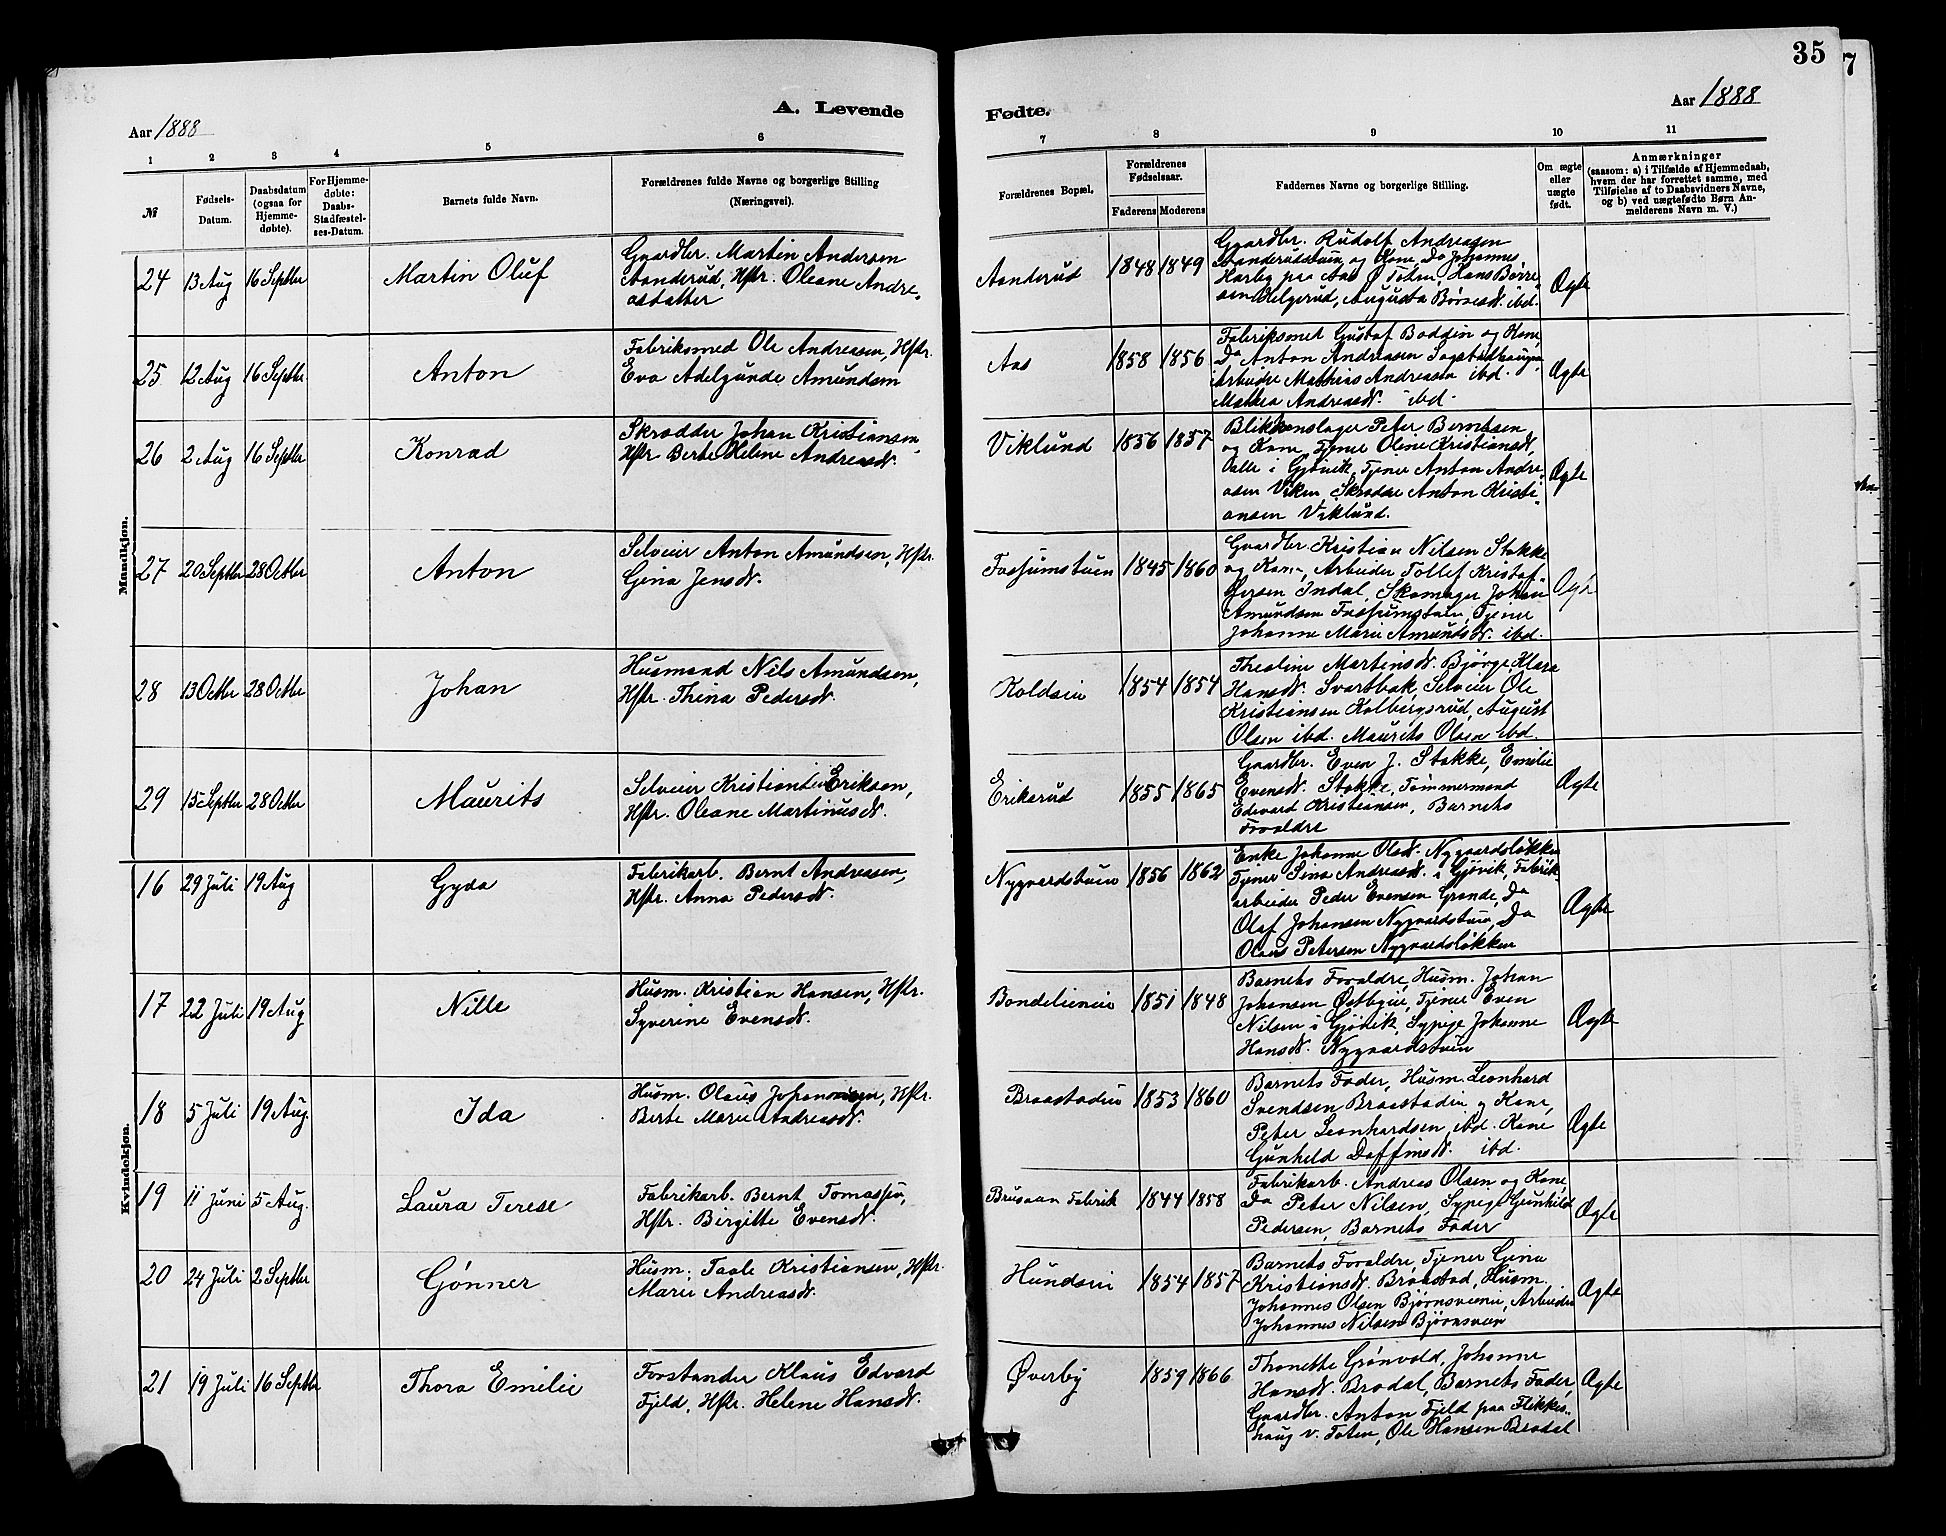 35
A. Levende Fødte.
Aar 1888
Aar 1888
1 2 3 4 5 6 7 8 9 10 11
№
Fødsels-Datum.
Daabsdatum (ogsaa for Hjemmedøbte).
For Hjemmedøbte: Daabs-Stadfæstelses-Datum.
Barnets fulde Navn.
Forældrenes fulde Navne og borgerlige Stilling (Næringsvei).
Forældrenes Bopæl.
Forældrenes Fødselsaar.
Faderens Moderens
Faddernes Navne og borgerlige Stilling.
Om ægte eller uægte født.
Anmærkninger
(saasom: a) i Tilfælde af Hjemmedaab, hvem der har forrettet samme, med Tilføielse af to Daabsvidners Navne, og b) ved uægtefødte Børn Anmelderens Navn m. V.)
Mandkjøn.
24 13 Aug 16 Septbr Martin Oluf
Gaardbr. Martin Andersen
Aanderud, Hstr. Oleane Andre-
asdatter
Aanderud 1848 1849
Gaardbr. Rudolf Andreasen
Aanderudstuen og Kone, Do Johannes
Harby paa Aas Ø Toten, Hans Børre-
sen Helgerud, Augusta Børresd. ibd.
Ægte
25 12 Aug 16 Septbr Anton
Fabriksmed Ole Andreasen, Hstr.
Eva Adelgunde Amundsen
Aas 1858 1856
Fabriksmed Gustaf Boddin og Kone,
Do Anton Andreasen Sogstadhaugen
Arbeider Mathias Andreasen ibd.
Mathea Andreasd. ibd.
Ægte
26 2 Aug 16 Septbr Konrad
Skrædder Johan Kristiansen,
Hstr Berte Helene Andreasd.
Viklund 1856 1857
Blikkenslager Peter Berntsen
og Kone, Tjener Oline Kristiansd,
Dalle i Gjøvik, Tjener Anton Andre-
asen Viken, Skrædder Anton Kristi-
ansen Viklund.
Ægte
27 20 Septbr 28 Octbr Anton
Selveier Anton Amundsen, Hstr.
Gina Jensd.
Fossumstuen 1845 1860
Gaardbr. Kristian Nilsen Stokke
og Kone, Arbeider Tollef Kristof-
fersen Indal, Skomager Johan
Amundsen Fossumstuen, Tjener
Johanne Marie Amundsd. ibd.
Ægte
28 13 Octbr 28 Octbr Johan
Husmand Nils Amundsen,
Hstr. Thina Pedersd.
Koldsein 1854 1854
Thealine Martinsd. Bjørge Klara
Hansd. Svartbak, Selveier Ole
Kristiansen Kolbergsrud, August
Olsen ibd. Maurits Olsen ibd.
29 15 Septbr 28 Octbr Maurits
Selveier Kristian Eriksen,
Hstr. Oleane Martinusd.
Eriksrud 1855 1865
Gaardbr. Even J. Stokke, Emilie
Evensd. Stokke, Tømmermand
Edevard Kristiansen, Barnets
Forældre
Ægte
Kvindekjøn.
16 29 Juli 19 Aug Gyda
Fabrikarb. Bernt Andreasen,
Hstr. Anna Pedersd.
Nygaardstuen 1856 1862
Enke Johanne Olsd. Nygaardsløkken
Tjener Sina Andreasd. i Gjøvik, Fabrik-
arbeider Peder Evensen Grande, Do
Olaf Johansen Nygaardstuen, Do
Olaus Petersen Nygaardsløkken
Ægte
17 22 Juli 19 Aug Nille
Husm. Kristian Hansen, Hstr.
Syverine Evensd.
Bondelieneie 1851 1848
Barnets Forældre, Husm. Johan
Johansen Østbyeie, Tjener Even
Nilsen i Gjøvik, Sypige Johanne
Hansd. Nygaardstuen
Ægte
18 5 Juli 19 Aug. Ida
Husm. Olaus Johannesen, Hstr.
Berte Marie Andreasd.
Braastadeie 1853 1860
Barnets Fader, Husm. Leonhard
Svendsen Braastadeie og Kone,
Peter Leonhardsen, ibd. Kone
Gunhild Daffinsd. ibd.
Ægte
19 11 Juni 5 Aug. Laura Terese
Fabrikarb. Bernt Tomassen,
Hstr. Birgitte Evensd.
Brusaan Fabrik 1844 1858
Fabrikarb. Andreas Olsen og Kone
Do Peter Nilsen, Sypige Gunhild
Pedersen, Barnets Fader
Ægte
20 24 Juli 2 Septbr Gønner
Husm. Taale Kristiansen, Hstr
Marie Andreasd.
Hundseie 1854 1857
Barnets Forældre, Tjener Gina
Kristiansd. Braastad, Husm.
Johannes Olsen Bjørnsveeneie, Arbeider
Johannes Nilsen Bjørnsveen
Ægte
21 19 Juli 16 Septbr Thora Emilie
Forstander Klaus Edvard
Fjeld, Hstr. Helene Hansd.
Øverby 1859 1866
Thonette Grønvold, Johanne
Hansd. Bradal, Barnets Fader,
Gaardbr. Anton Fjeld paa Flikkes-
haug v. Toten, Ole Hansen Bradal
Ægte